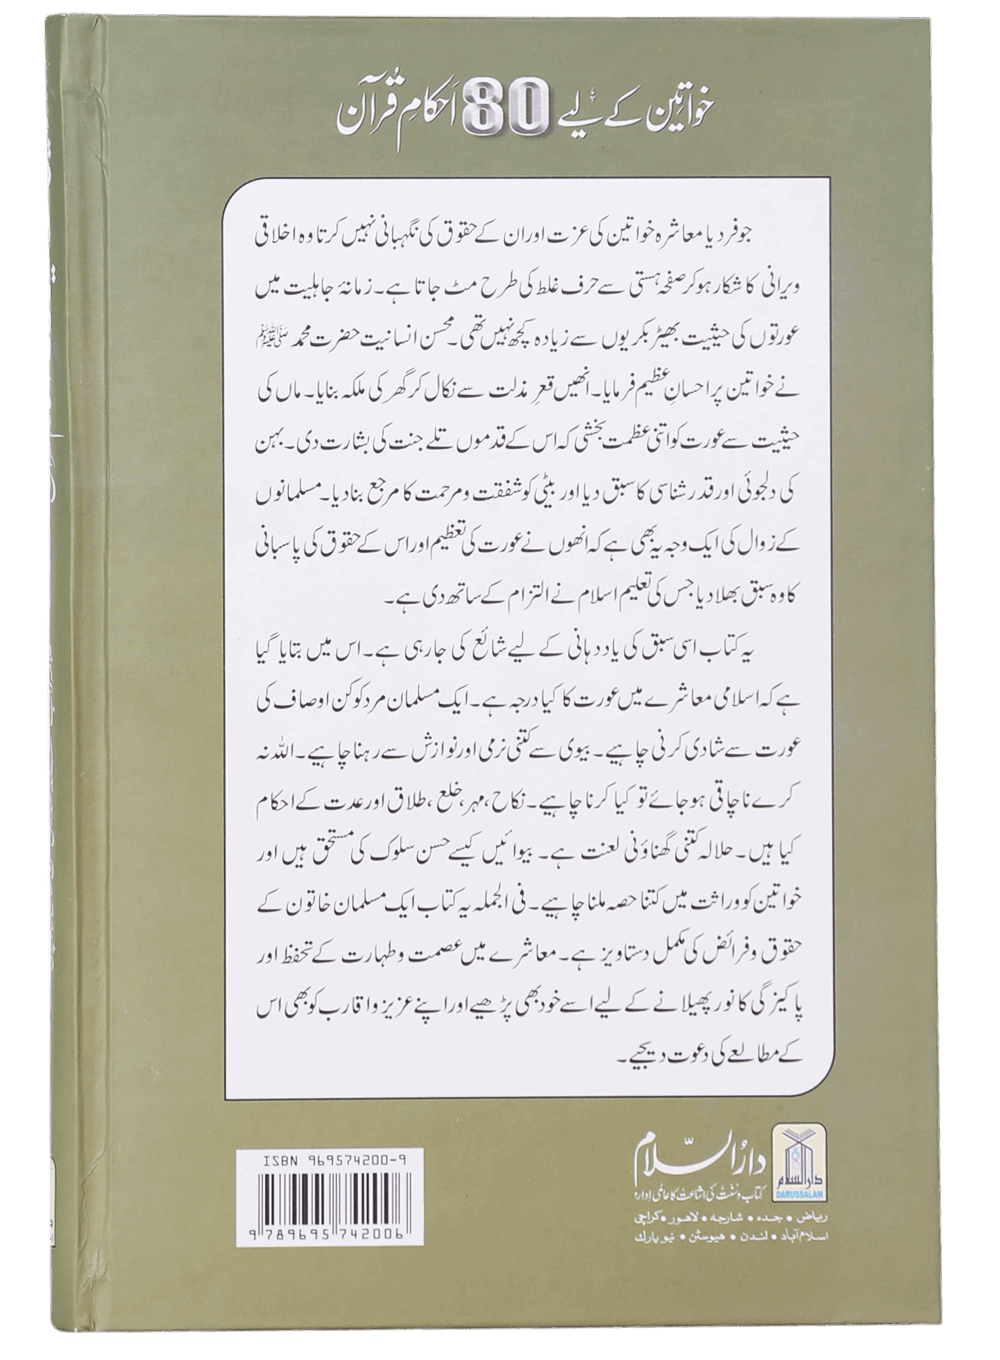 خواتین کے لیے 80 اَحکامِ قُرآن
جو فرد یا معاشرہ خواتین کی عزت اور ان کے حقوق کی نگہبانی نہیں کرتا وہ اخلاقی
ویرانی کا شکار ہو کر صفحہ ہستی سے حرف غلط کی طرح مٹ جاتا ہے۔ زمانۂ جاہلیت میں
عورتوں کی حیثیت بھیڑ بکریوں سے زیادہ کچھ نہیں تھی۔ محسن انسانیت حضرت محمد ﷺ
نے خواتین پر احسانِ عظیم فرمایا۔ انھیں قعرِ مذلت سے نکال کر گھر کی ملکہ بنایا۔ ماں کی
حیثیت سے عورت کو اتنی عظمت بخشی کہ اس کے قدموں تلے جنت کی بشارت دی۔ بہن
کی دلجوئی اور قدر شناسی کا سبق دیا اور بیٹی کو شفقت و مرحمت کا مرجع بنا دیا۔ مسلمانوں
کے زوال کی ایک وجہ یہ بھی ہے کہ انھوں نے عورت کی تعظیم اور اس کے حقوق کی پاسبانی
کا وہ سبق بھلا دیا جس کی تعلیم اسلام نے التزام کے ساتھ دی ہے۔
یہ کتاب اسی سبق کی یاد دہانی کے لیے شائع کی جا رہی ہے۔ اس میں بتایا گیا
ہے کہ اسلامی معاشرے میں عورت کا کیا درجہ ہے۔ ایک مسلمان مرد کو کن اوصاف کی
عورت سے شادی کرنی چاہیے۔ بیوی سے کتنی نرمی اور نوازش سے رہنا چاہیے۔ اللہ نہ
کرے ناچاقی ہو جائے تو کیا کرنا چاہیے۔ نکاح، مہر، خلع، طلاق اور عدت کے احکام
کیا ہیں۔ حلالہ کتنی گھناؤنی لعنت ہے۔ بیوائیں کیسے حسن سلوک کی مستحق ہیں اور
خواتین کو وراثت میں کتنا حصہ ملنا چاہیے۔ فی الجملہ یہ کتاب ایک مسلمان خاتون کے
حقوق و فرائض کی مکمل دستاویز ہے۔ معاشرے میں عصمت و طہارت کے تحفظ اور
پاکیزگی کا نور پھیلانے کے لیے اسے خود بھی پڑھیے اور اپنے عزیز و اقارب کو بھی اس
کے مطالعے کی دعوت دیجیے۔
دارُالسّلام
دارالسلام
DARUSSALAM
کتاب و سنت کی اشاعت کا عالمی ادارہ
ریاض • جدہ • شارجہ • لاہور • کراچی
اسلام آباد • لندن • ہیوسٹن • نیو یارک
ISBN 969574200-9
9 789695 742006